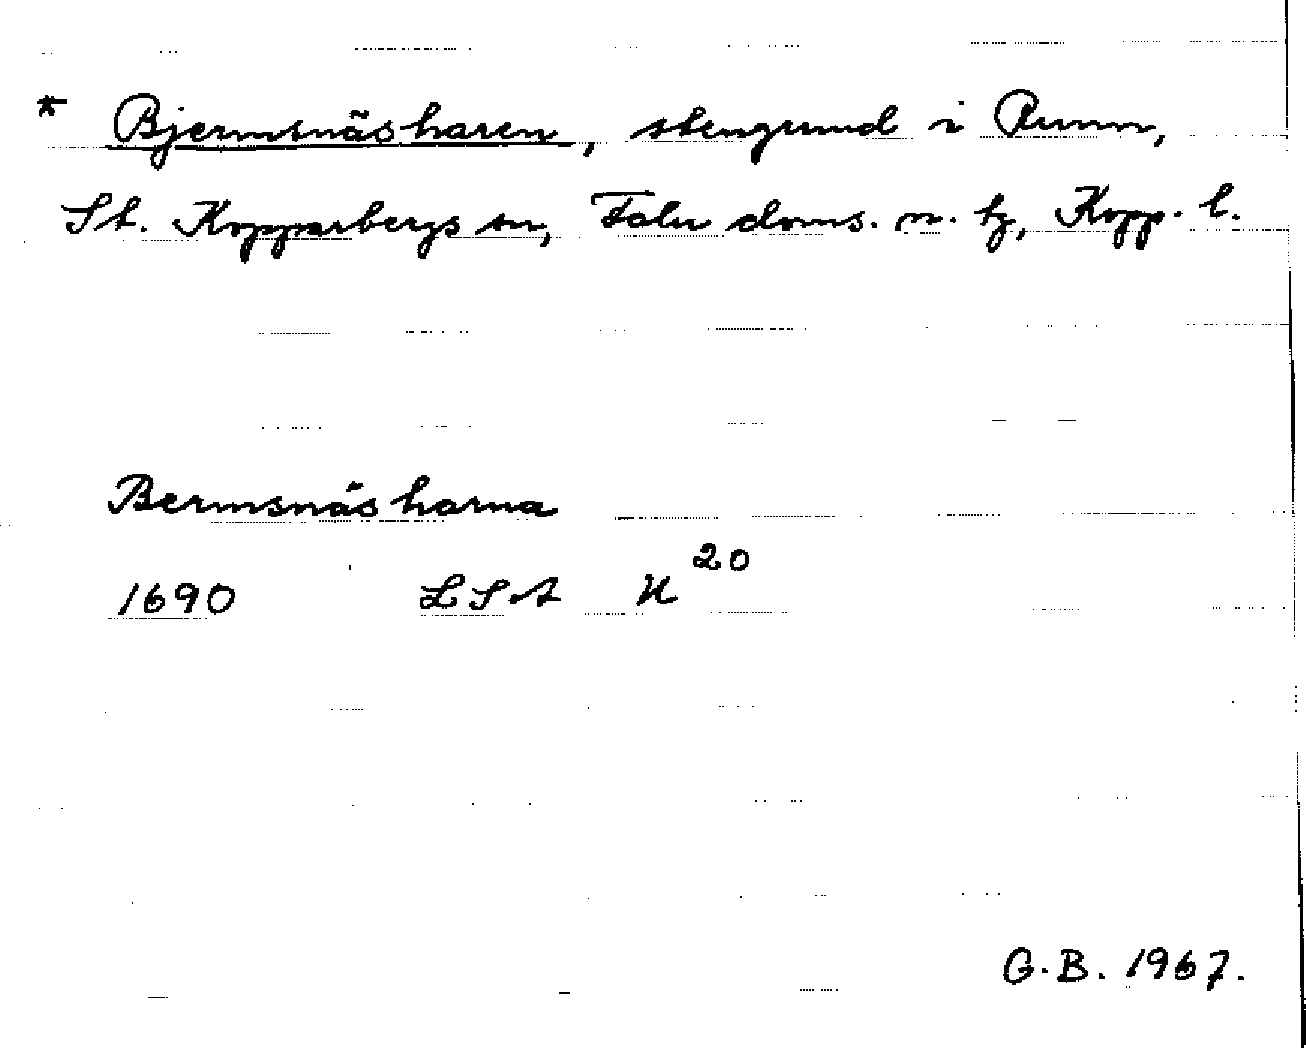 * Bjermsnäsharen, stengrund i Runn,
St. Kopparbergs sn, Falu doms. n. tg, Kopp. l.
Bermsnäsharna
1690 LSA U 20
G.B. 1967.